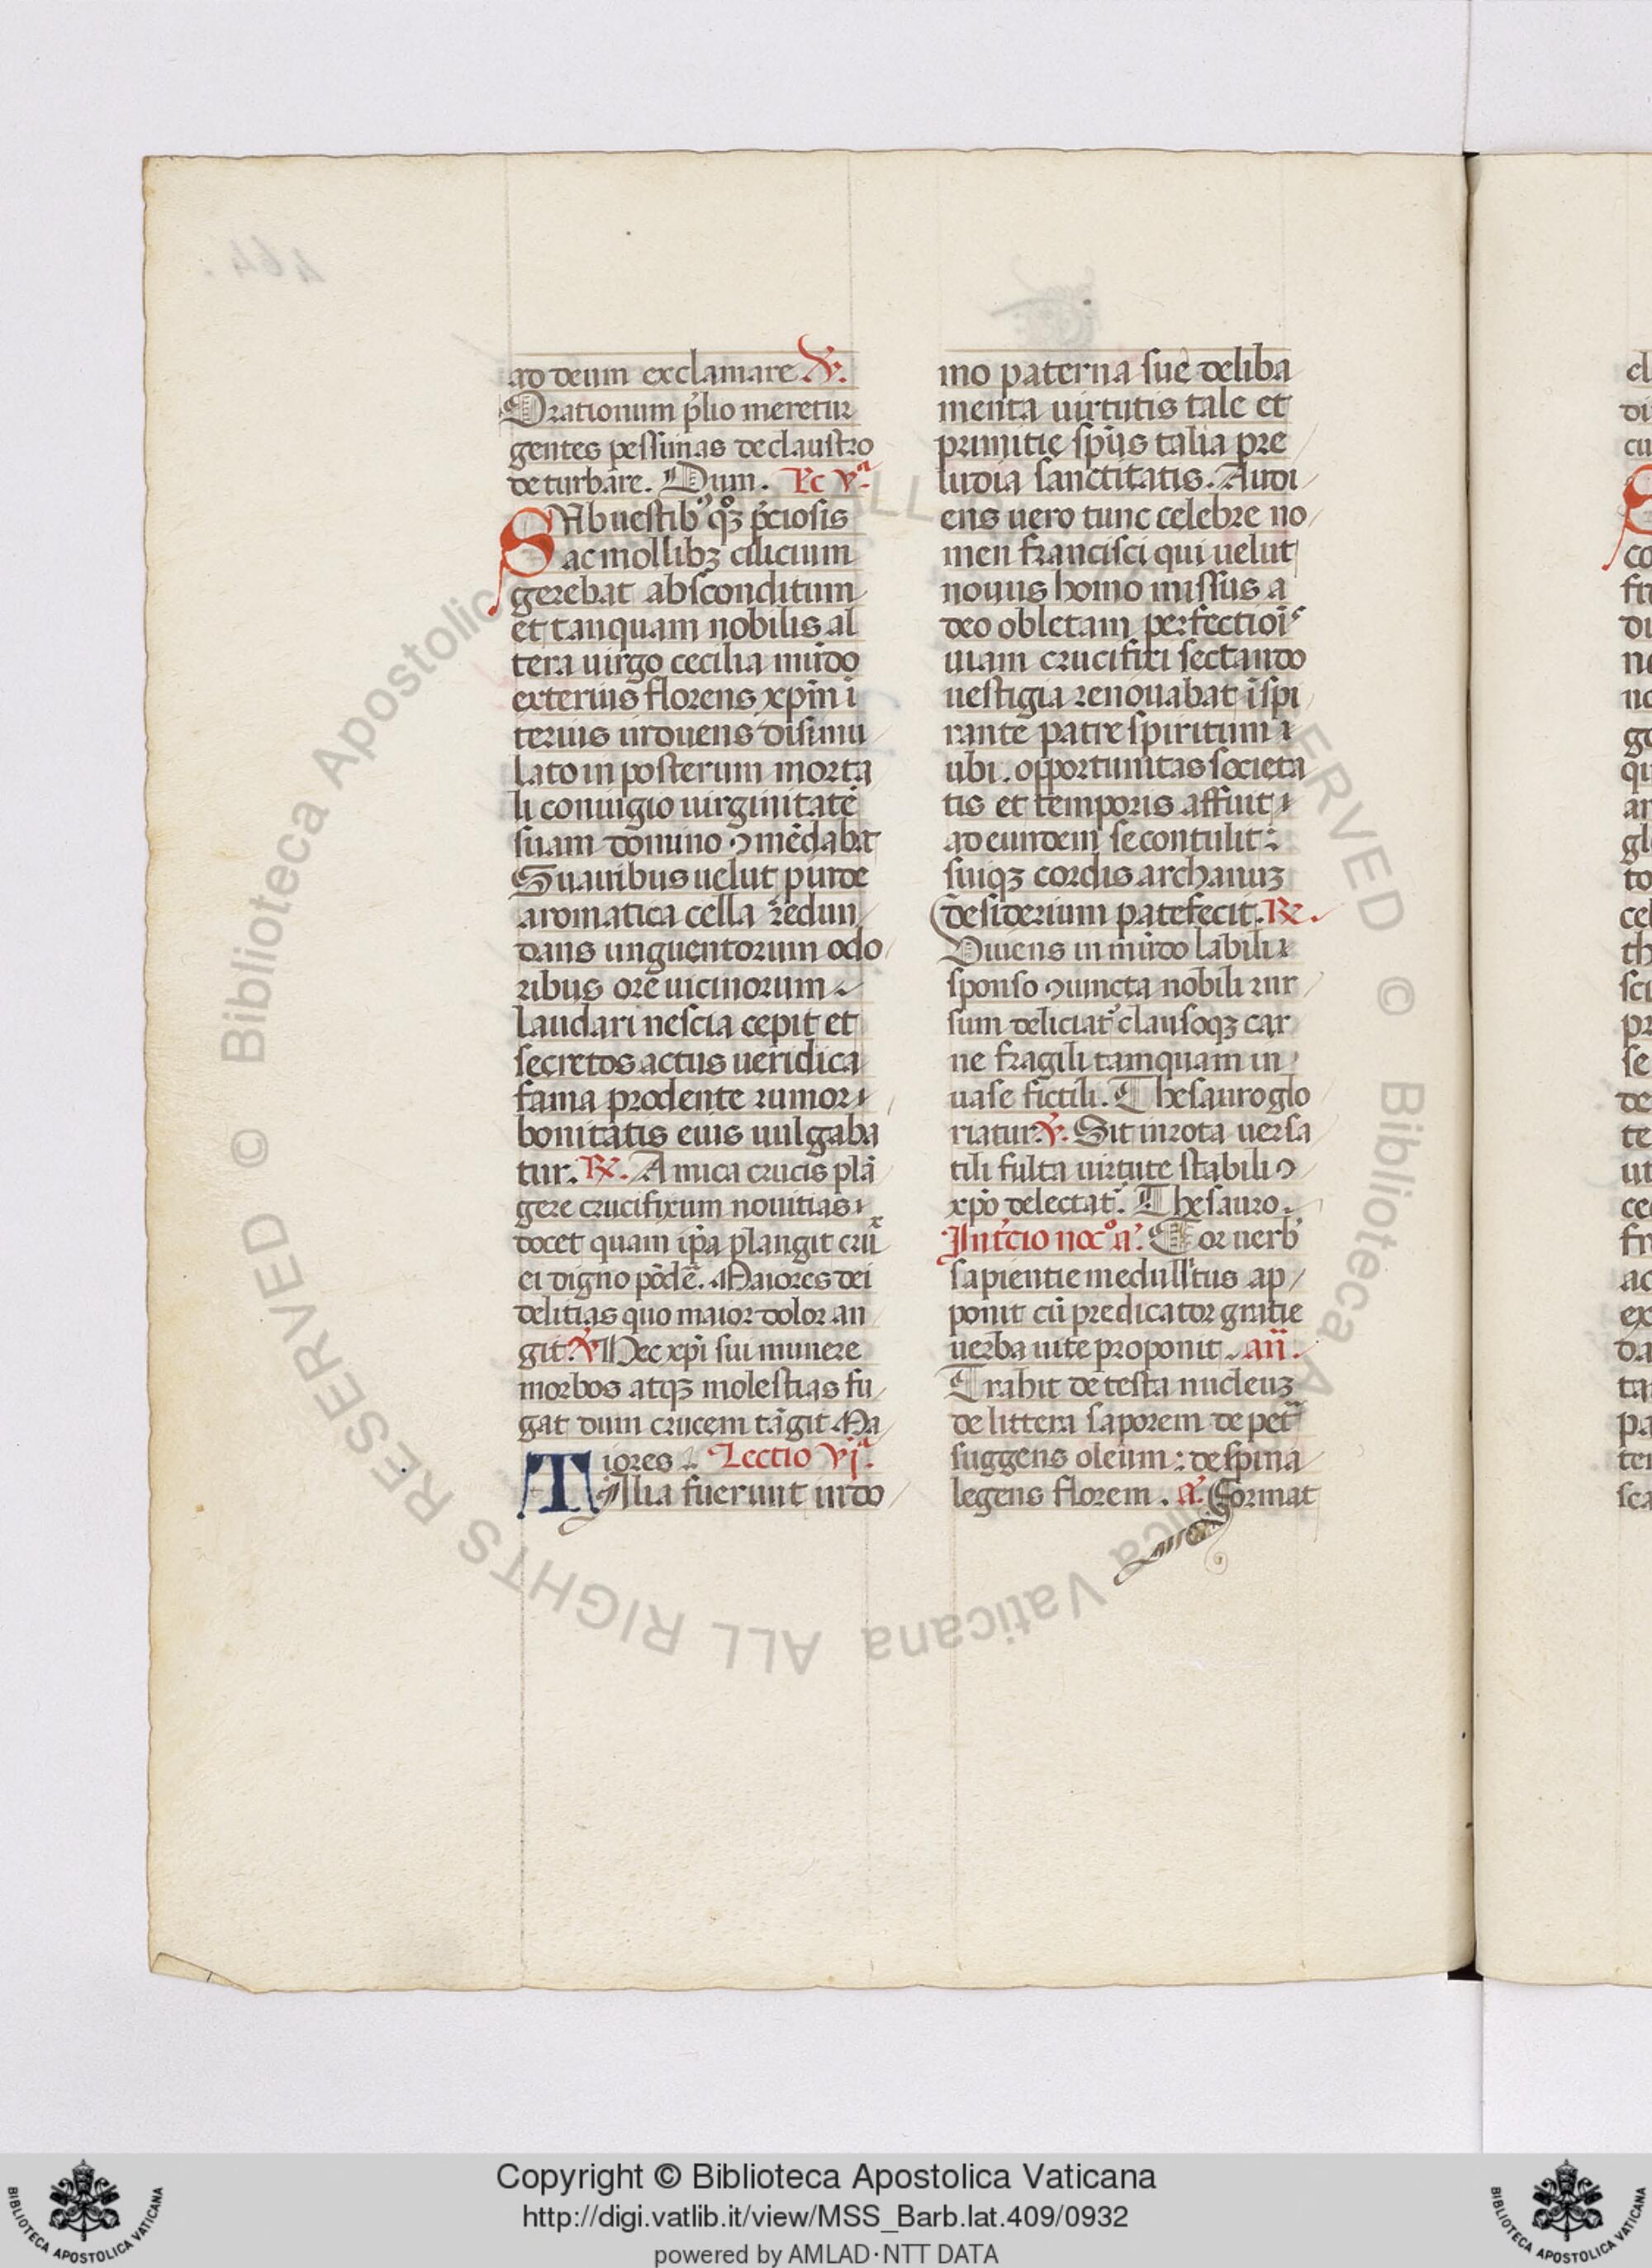 ad deum exclamare ℣.
Orationum p̄lio meretur
gentes pessimas de claustro
deturbare. Dum. Lc̄ vᵃ.
SUb uestib⁹ qͦꝫ p̄ciosis
ac mollibꝫ cilicium
gerebat absconditum
et tanquam nobilis al
tera uirgo cecilia mūdo
exterius florens xp̄m ī
terius induens disimu
lato in posterum morta
li coniugio uirginitatē
suam domino ꝯmēdabat
Suauibus uelut purde
aromatica cella redun
dans unguentorum odo
ribus ore uicinorum
laudari nescia cepit et
secretos actus ueridica
fama prodente rumor
bonitatis eius uulgaba
tur. ℞. Amica crucis plā
gere crucifixum nouitias
docet quam ip̄a plangit crūx
ei digno pōdē. Maiores dei
delitias quo maior dolor an
git. ℣ Hec xp̄i sui munere
morbos atqꝫ molestias fu
gat dum crucem tāgit Ma
iores. Lectio vjᵃ.
TAlia fuerunt in do
mo paterna sue deliba
menta uirtutis tale et
primitie sp̄us talia pre
ludia sanctitatis. Audi
ens uero tunc celebre no
men francisci qui uelut
nouus homo missus a
deo obletam perfectiōis
uiam crucifixi sectando
uestigia renouabat īspi
rante patre spiritum
ubi. opportunitas societa
tis et temporis affuit
ad eundem se contulit:
suiqꝫ cordis archanuꝫ
desiderium patefecit. ℞.
Viuens in mūdo labili
sponso ꝯiuncta nobili rur
sum deliciat᷑ clausoqꝫ car
ne fragili tamquam in
uase fictili. Thesauro glo
riatur ℣. Sit in rota uersa
tili fulta uirtute stabili
xp̄o delectat᷑. Thesauro.
In t̄cio noc̄ᵒ a. Cor uerb
sapientie medullitus ap
ponit cū predicator gratie
uerba uite proponit. an̄.
Trahit de testa nucleuꝫ
de littera saporem de petᵃ
suggens oleum: de spina
legens florem. a. Format
Copyright © Biblioteca Apostolica Vaticana
http://digi.vatlib.it/view/MSS_Barb.lat.409/0932
powered by AMLAD·NTT DATA